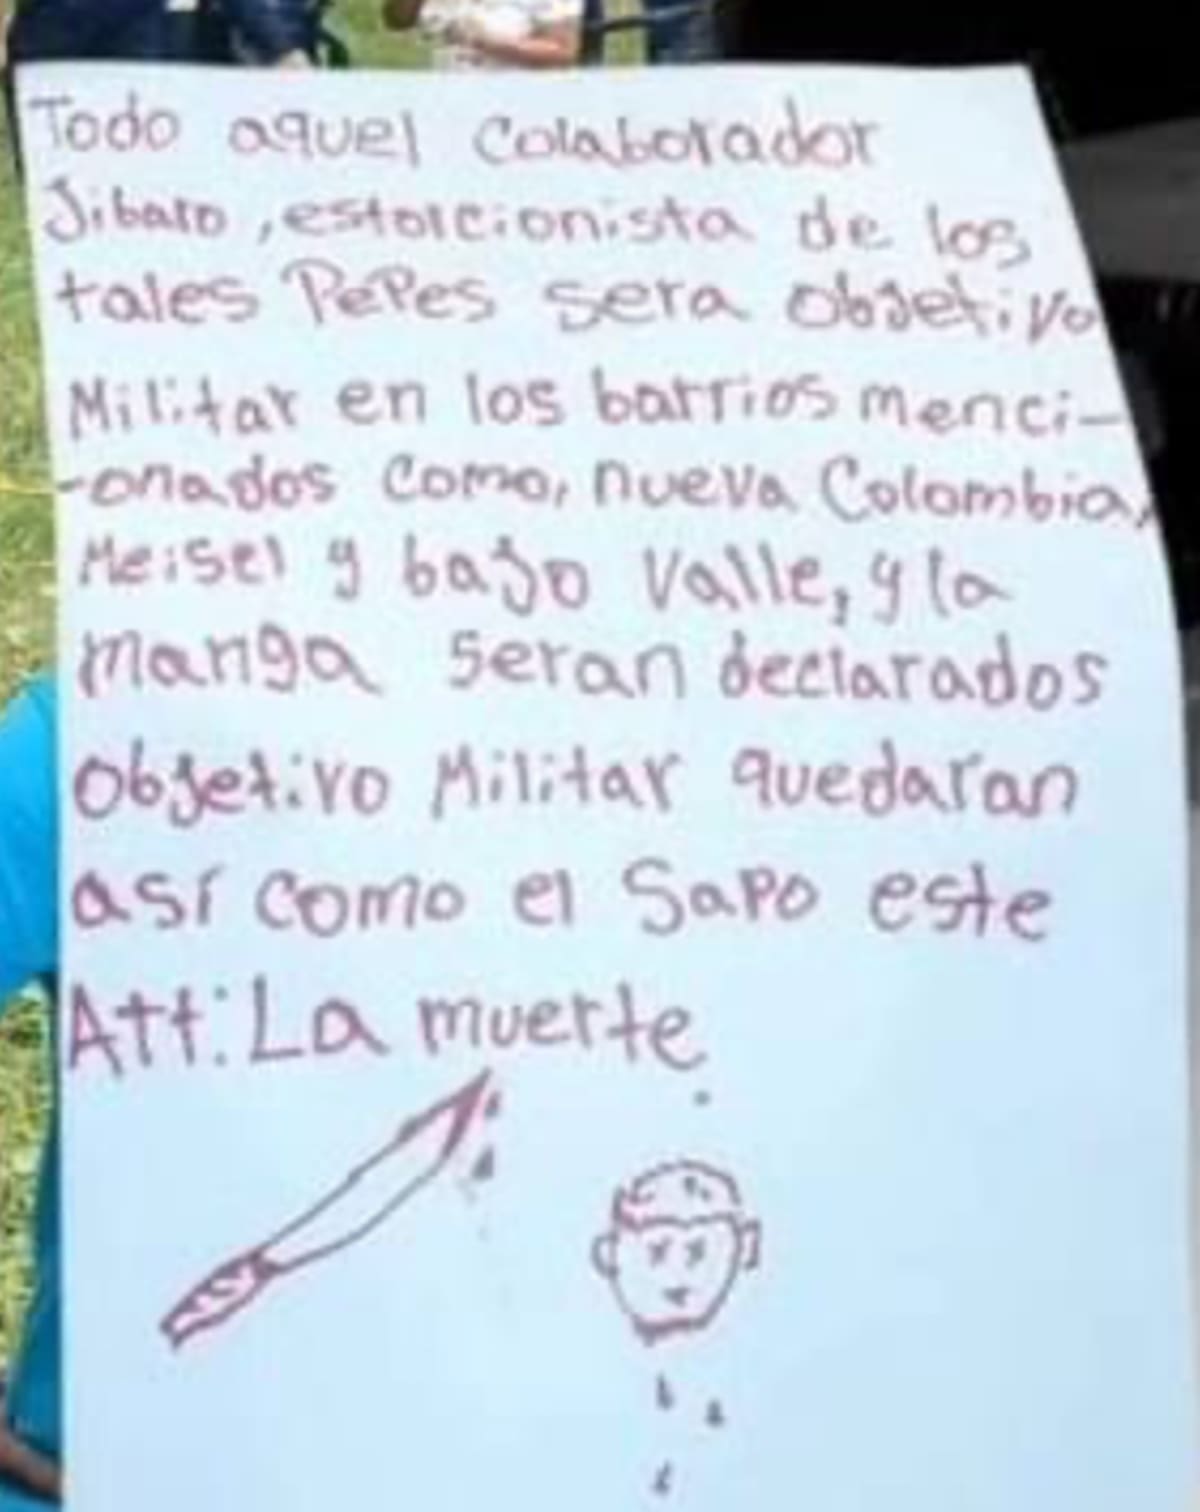 Todo aquel Colaborador
Jibaro, estorcionista de los
tales PePes sera objetivo
Militar en los barrios menci-
-onados como, nueva Colombia,
Meisel y bajo Valle, y la
manga seran declarados
objetivo Militar quedaran
así como el SaPo este
Att: La muerte